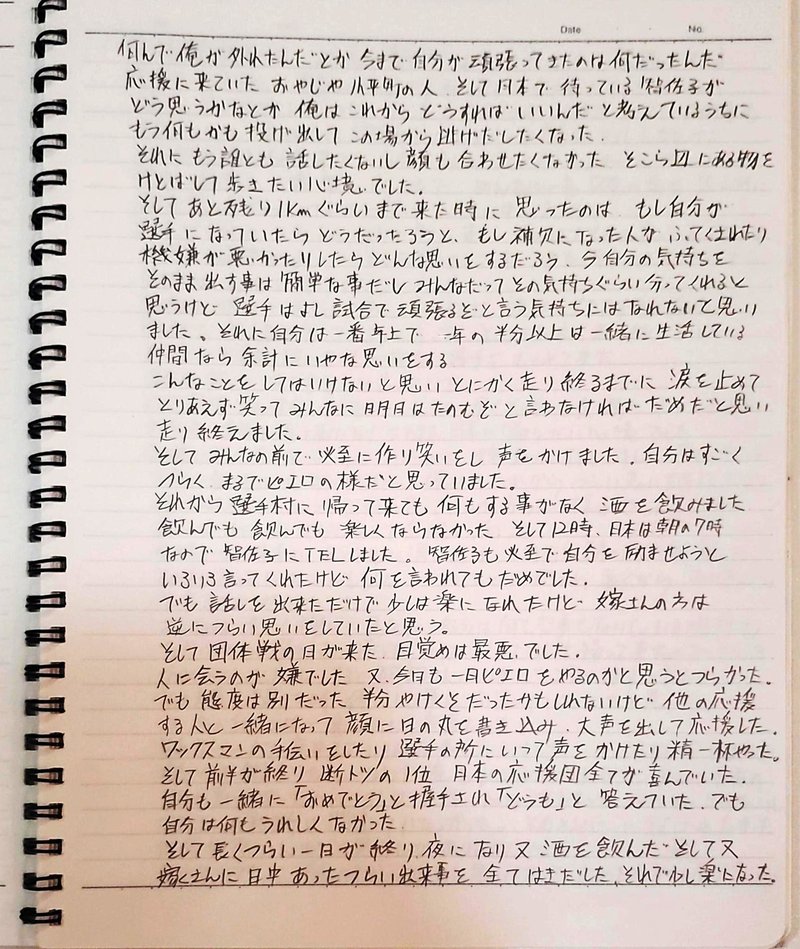 Date No.
何んで俺が外れたんだとか 今まで自分が頑張ってきたのは何だったんだ
応援に来ていた おやじや 小平町の人 そして日本で待っている 智佐子が
どう思うかなとか 俺はこれから どうすればいいんだ と考えているうちに
もう何もかも投げ出して この場から逃げだしたくなった.
それに もう誰とも 話したくないし 顔も合わせたくなかった そこら辺にある物を
けとばして歩きたい心境でした.
そして あと残り 1kmぐらいまで来た時に 思ったのは もし自分が
選手になっていたら どうだったろうと、もし補欠になった人が ふてくされたり
機嫌が悪かったりしたら どんな思いをするだろう. 今自分の気持ちを
そのまま出す事は 簡単な事だし みんなだって その気持ちぐらい分ってくれると
思うけど 選手はよし試合で頑張るぞと言う気持ちにはなれないと思い
ました。それに自分は一番年上で 一年の半分以上は一緒に生活している
仲間なら 余計に いやな思いをする
こんなことを してはいけないと思い とにかく走り終るまでに 涙を止めて
とりあえず笑って みんなに 明日はたのむぞ と言わなければ だめだと思い
走り終えました.
そして みんなの前で 必至に作り笑いをし 声をかけました. 自分はすごく
つらく まるでピエロの様だと思っていました.
それから 選手村に 帰って来ても 何もする事がなく 酒を飲みました
飲んでも 飲んでも 楽しくならなかった そして12時、日本は朝の7時
なので 智佐子にTELしました。智佐子も必至で自分を励ませようと
いろいろ言ってくれたけど 何を言われてもだめでした.
でも 話しを出来ただけで少しは楽になれたけど 嫁さんの方は
逆につらい思いをしていたと思う。
そして 団体戦の日が来た. 目覚めは最悪でした.
人に会うのが 嫌でした 又、今日も一日ピエロをやるのかと思うとつらかった.
でも 態度は別だった 半分やけくそだったかもしれないけど 他の応援
する人と一緒になって 顔に日の丸を書き込み、大声を出して応援した.
ワックスマンの手伝いをしたり 選手の所にいって声をかけたり精一杯やった。
そして前半が終り 断トツの1位 日本の応援団全てが喜んでいた.
自分も一緒に「おめでとう」と握手され「どうも」と 答えていた. でも
自分は何もうれしくなかった.
そして長くつらい一日が終り、夜になり 又 酒を飲んだ そして又
嫁さんに 日中 あったつらい出来事を 全てはきだした. それで少し楽になった。